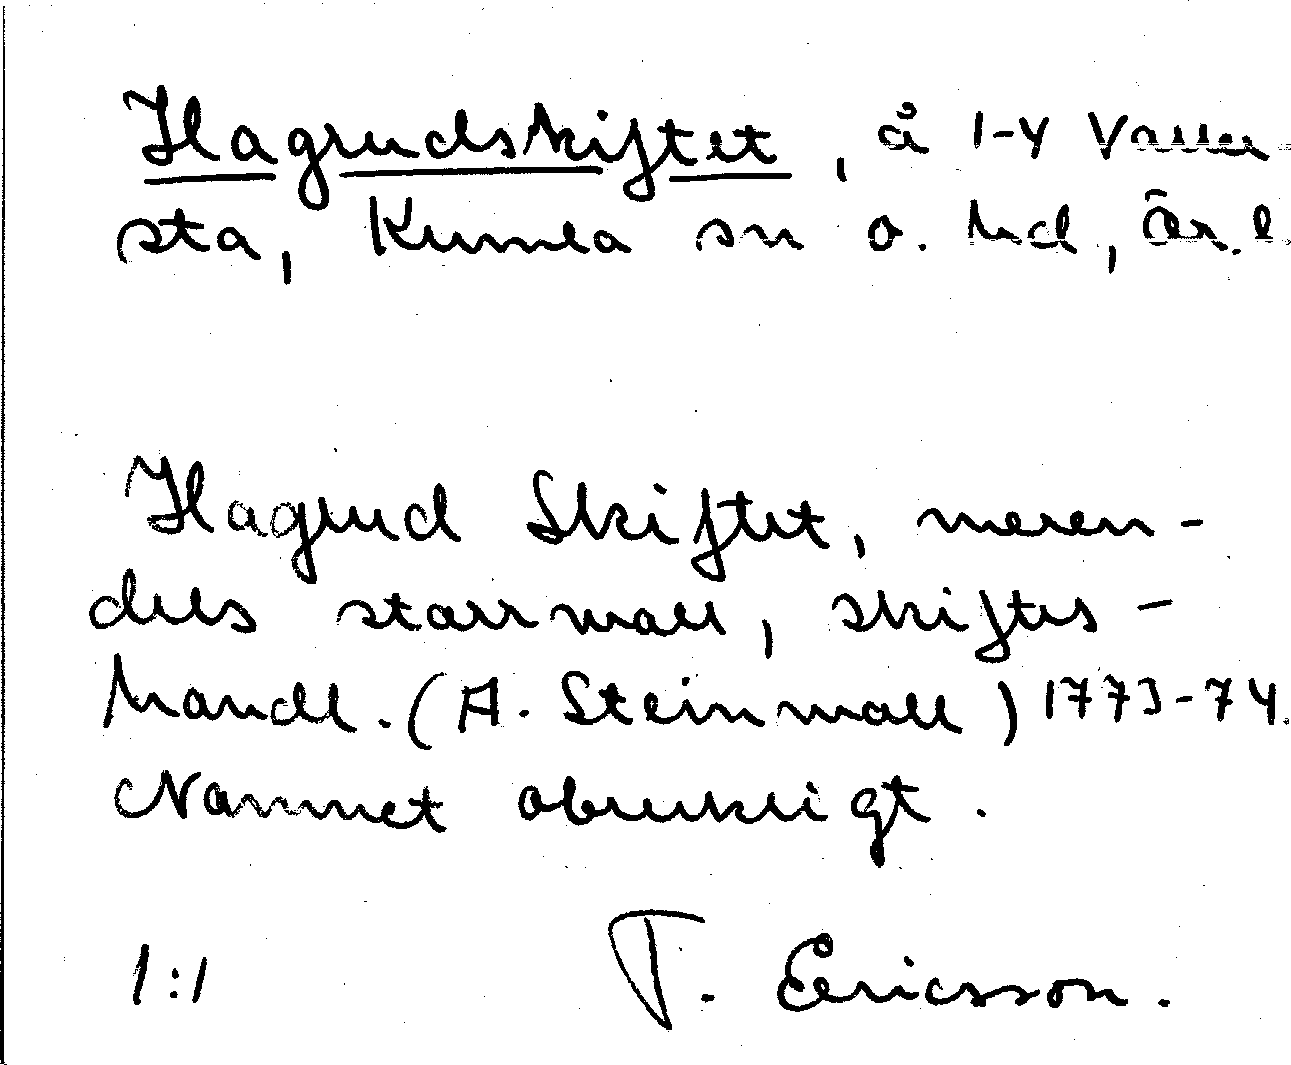 Hagrudskiftet, å 1-4 Valla-
sta, Kumla sn o. hd, Ör. l.
Hagrud Skiftet, meren-
dels starrvall, skiftes-
handl. (A. Steinwall) 1773-74.
Namnet obrukligt.
1:1 T. Ericsson.